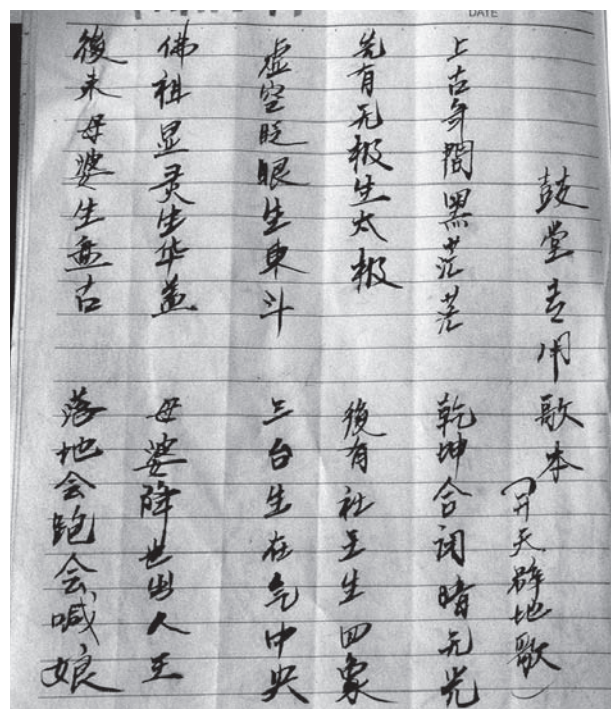 DATE
鼓堂专用歌本（开天辟地歌）
上古年間黑茫茫 乾坤合闭暗无光
先有无极生太极 後有社王生四象
虚空眨眼生東斗 三台生在气中央
佛祖显灵生华盖 母婆降世出人王
後来母婆生盘古 落地会跑会喊娘